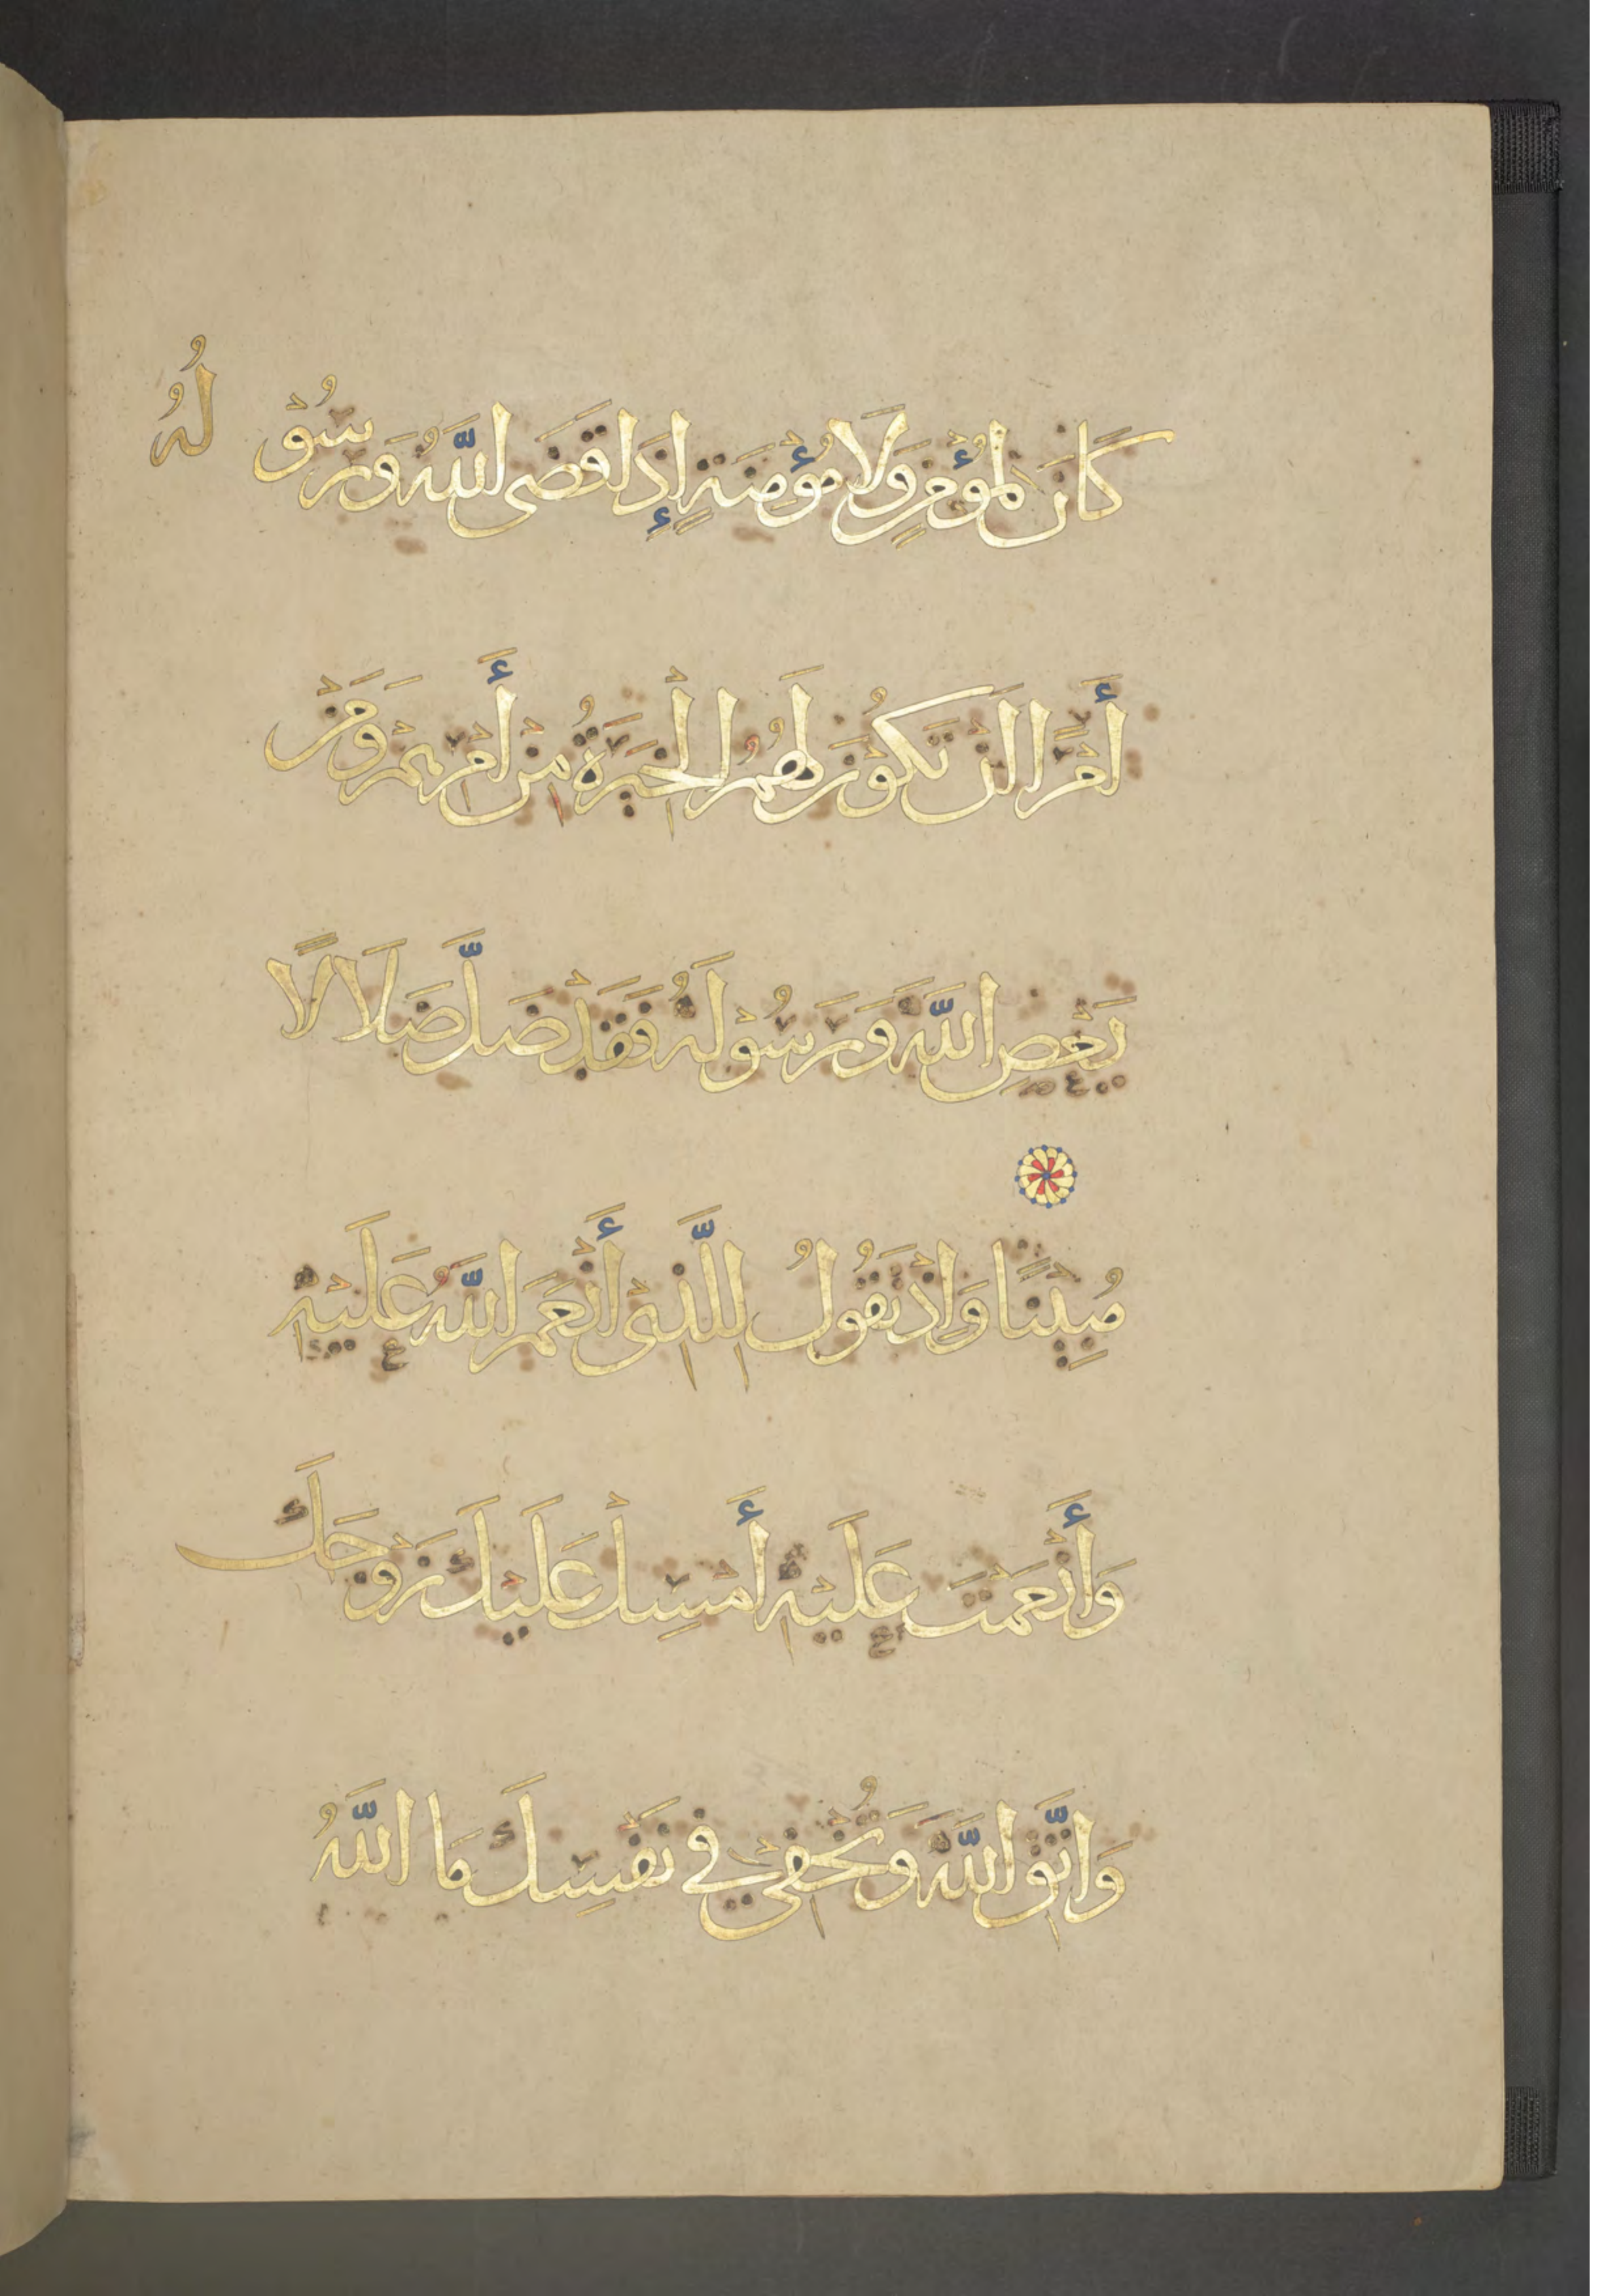 كَانَ لِمُؤْمِنٍ وَلَا مُؤْمِنَةٍ إِذَا قَضَى اللَّهُ وَرَسُوْلُهُ
أَمْرًا اَنْ تَكُوْنَ لَهُمُ الْخِيَرَةُ مِنْ أَمْرِهِمْ وَمَنْ
يَعْصِ اللَّهَ وَرَسُوْلَهُ فَقَدْ ضَلَّ ضَلَالًا
مُبِيْنًا وَاِذْ تَقُوْلُ لِلَّذِيْ أَنْعَمَ اللَّهُ عَلَيْهِ
وَأَنْعَمْتَ عَلَيْهِ أَمْسِكْ عَلَيْكَ زَوْجَكَ
وَاتَّقِ اللَّهَ وَتُخْفِيْ فِي نَفْسِكَ مَا اللَّهُ